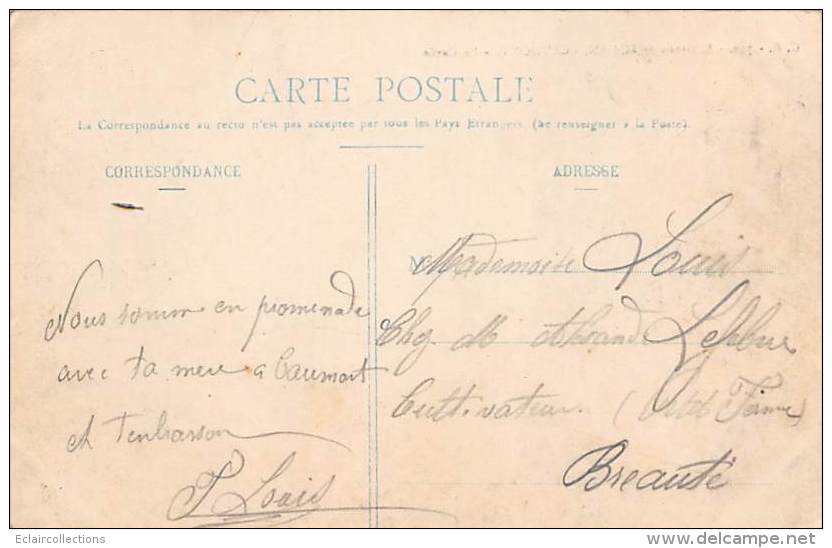 CARTE POSTALE
La Correspondance au recto n'est pas acceptée par tous les Pays Etrangers. (Se renseigner à la Poste).
CORRESPONDANCE
ADRESSE
Nous somm en promenade
avec ta mere a Caumont
et tenbrasson
F Louis
Mademoise Louis
Chez M Lefebvre
Cultivateur (Ferme)
Breauté
Eclaircollections
delcampe.net